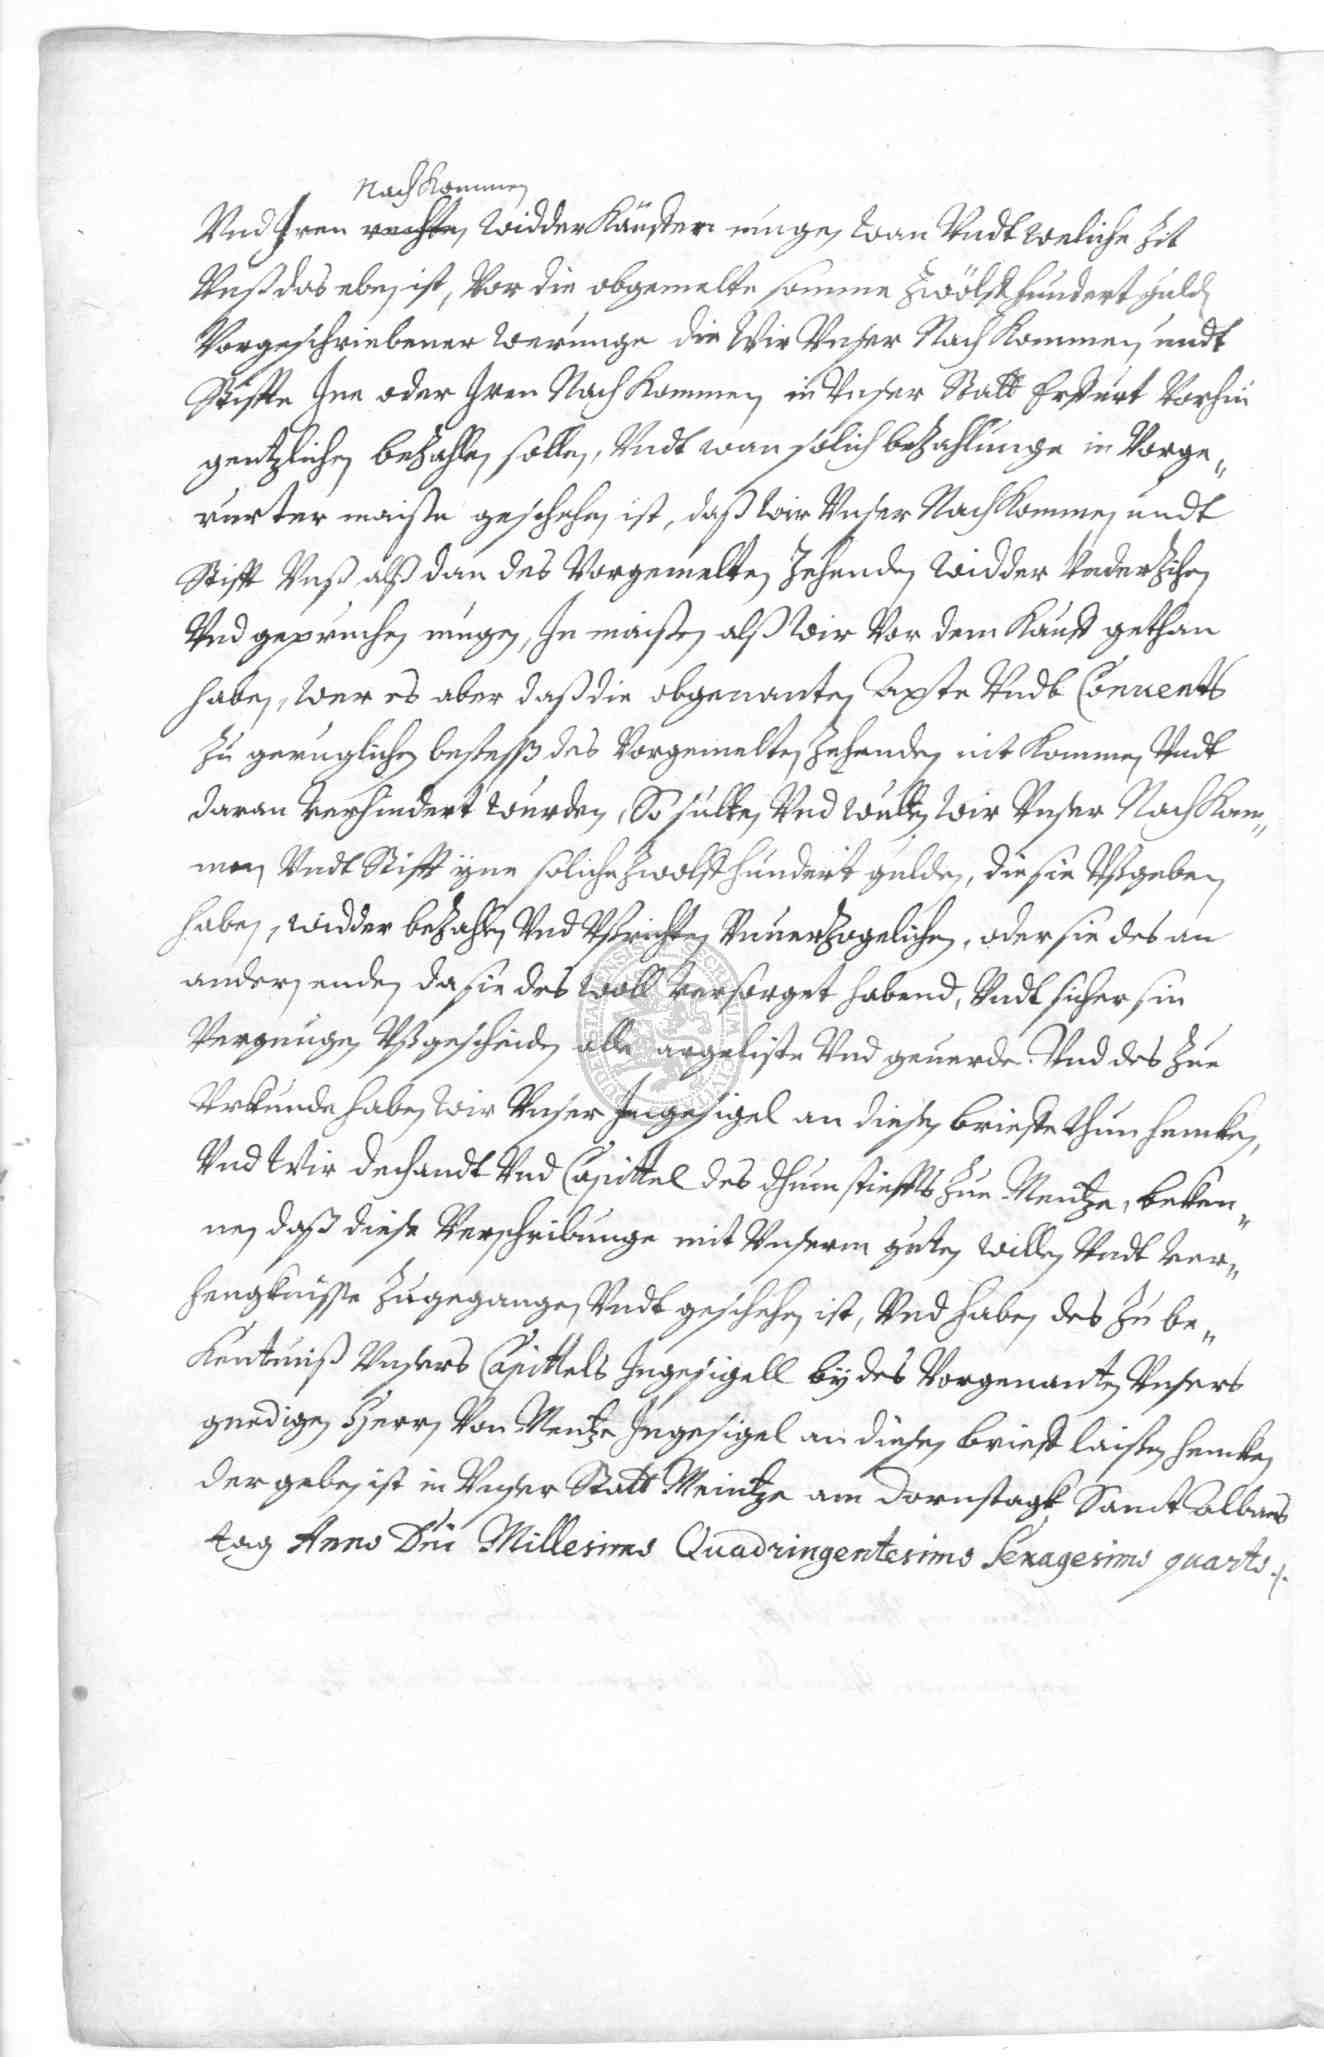 Nachkommen
Vnd Iren rechten widder Käuffen mugen, wan Vndt weliche Zit
Vnß das eben ist, Vor die obgemelte somme Zwölff hundert guld
Vorgeschriebener werunge die Wir Vnser Nach Kommen, undt
Stiffte Ine oder Iren Nach Kommen, in Vnser Statt Erffurt Vorhin
gentzlichen beZahlen sollen, Vndt wan solich beZahlunge in Vorge„
rurter maiße geschehen ist, daß Wir Vnser Nach Kommen undt
Stifft Vnß alß dan des Vorgemelten Zehenden widder VnderZihen
Vnd gepruchen mugen, In maißen alß Wir Vor dem Kauff gethan
haben, wer es aber daß die obgenanten Apte Vndt Conuents
Zu geruglichen besteß des Vorgemelten Zehenden nit Kommen Vndt
daran verhindert wurden, So sulten Vnd wulten Wir Vnser Nach Kom„
men Vndt Stifft yne soliche Zwolff hundert gulden, die sie Vßgeben
haben, widder beZahlen Vnd Vßrichten VnuerZogelichen, oder sie des an
andern enden da sie des Woll versorget habend, Vndt sicher sin
Vergnugen Vßgescheiden alle argeliste Vnd geuerde. Vnd des Zue
Vrkunde haben Wir Vnser Ingesigel an diesen brieffe thun hencken,
Vnd Wir dechandt Vnd Capittel des dhum stieffts Zue Mentze, beken„
nen daß diese Verschribunge mit Vnserm guten willen Vndt ver„
hengknisse Zugegangen, Vndt geschehen ist, Vnd haben des Zu be„
Kentniß Vnsers Capittels Ingesigell by des Vorgenanten Vnsers
gnedigen Herrn Von Mentze Ingesigel an diesen brieff laißen hencken
der geben ist in Vnser Statt Meintze am Dornstagk Sanct Albans
tag Anno Dni Millesimo Quadringentesimo Sexagesimo quarto ./.